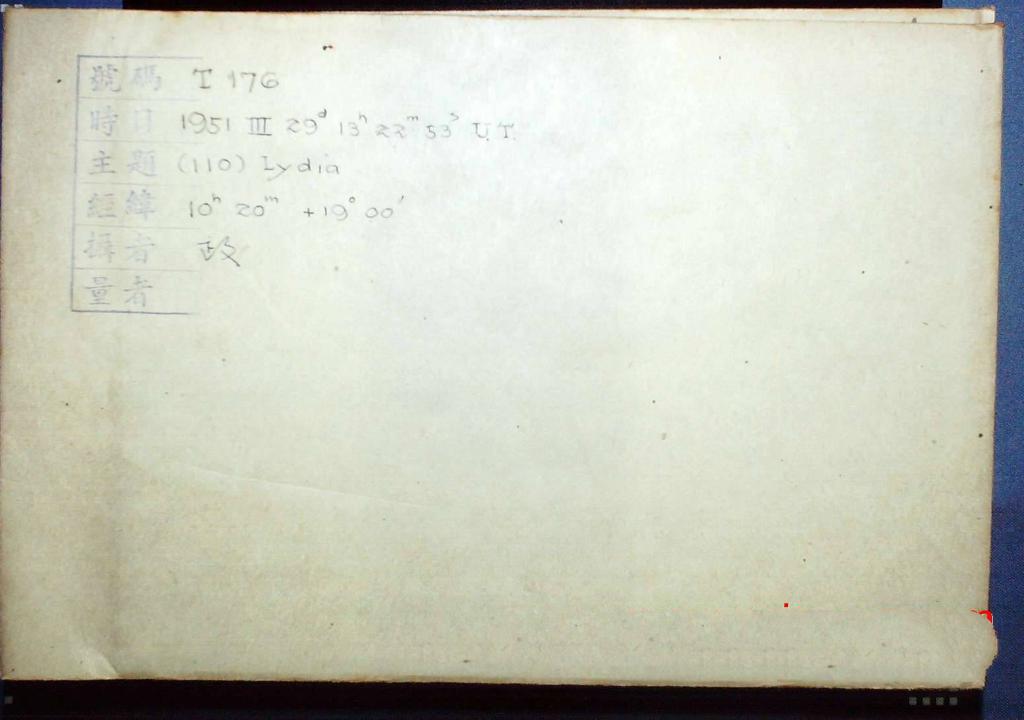 號碼 I 176
時日 1951 III 29ᵈ 13ʰ 22ᵐ 53ˢ U.T.
主題 (110) Lydia
經緯 10ʰ 20ᵐ +19° 00′
攝者 政
量者